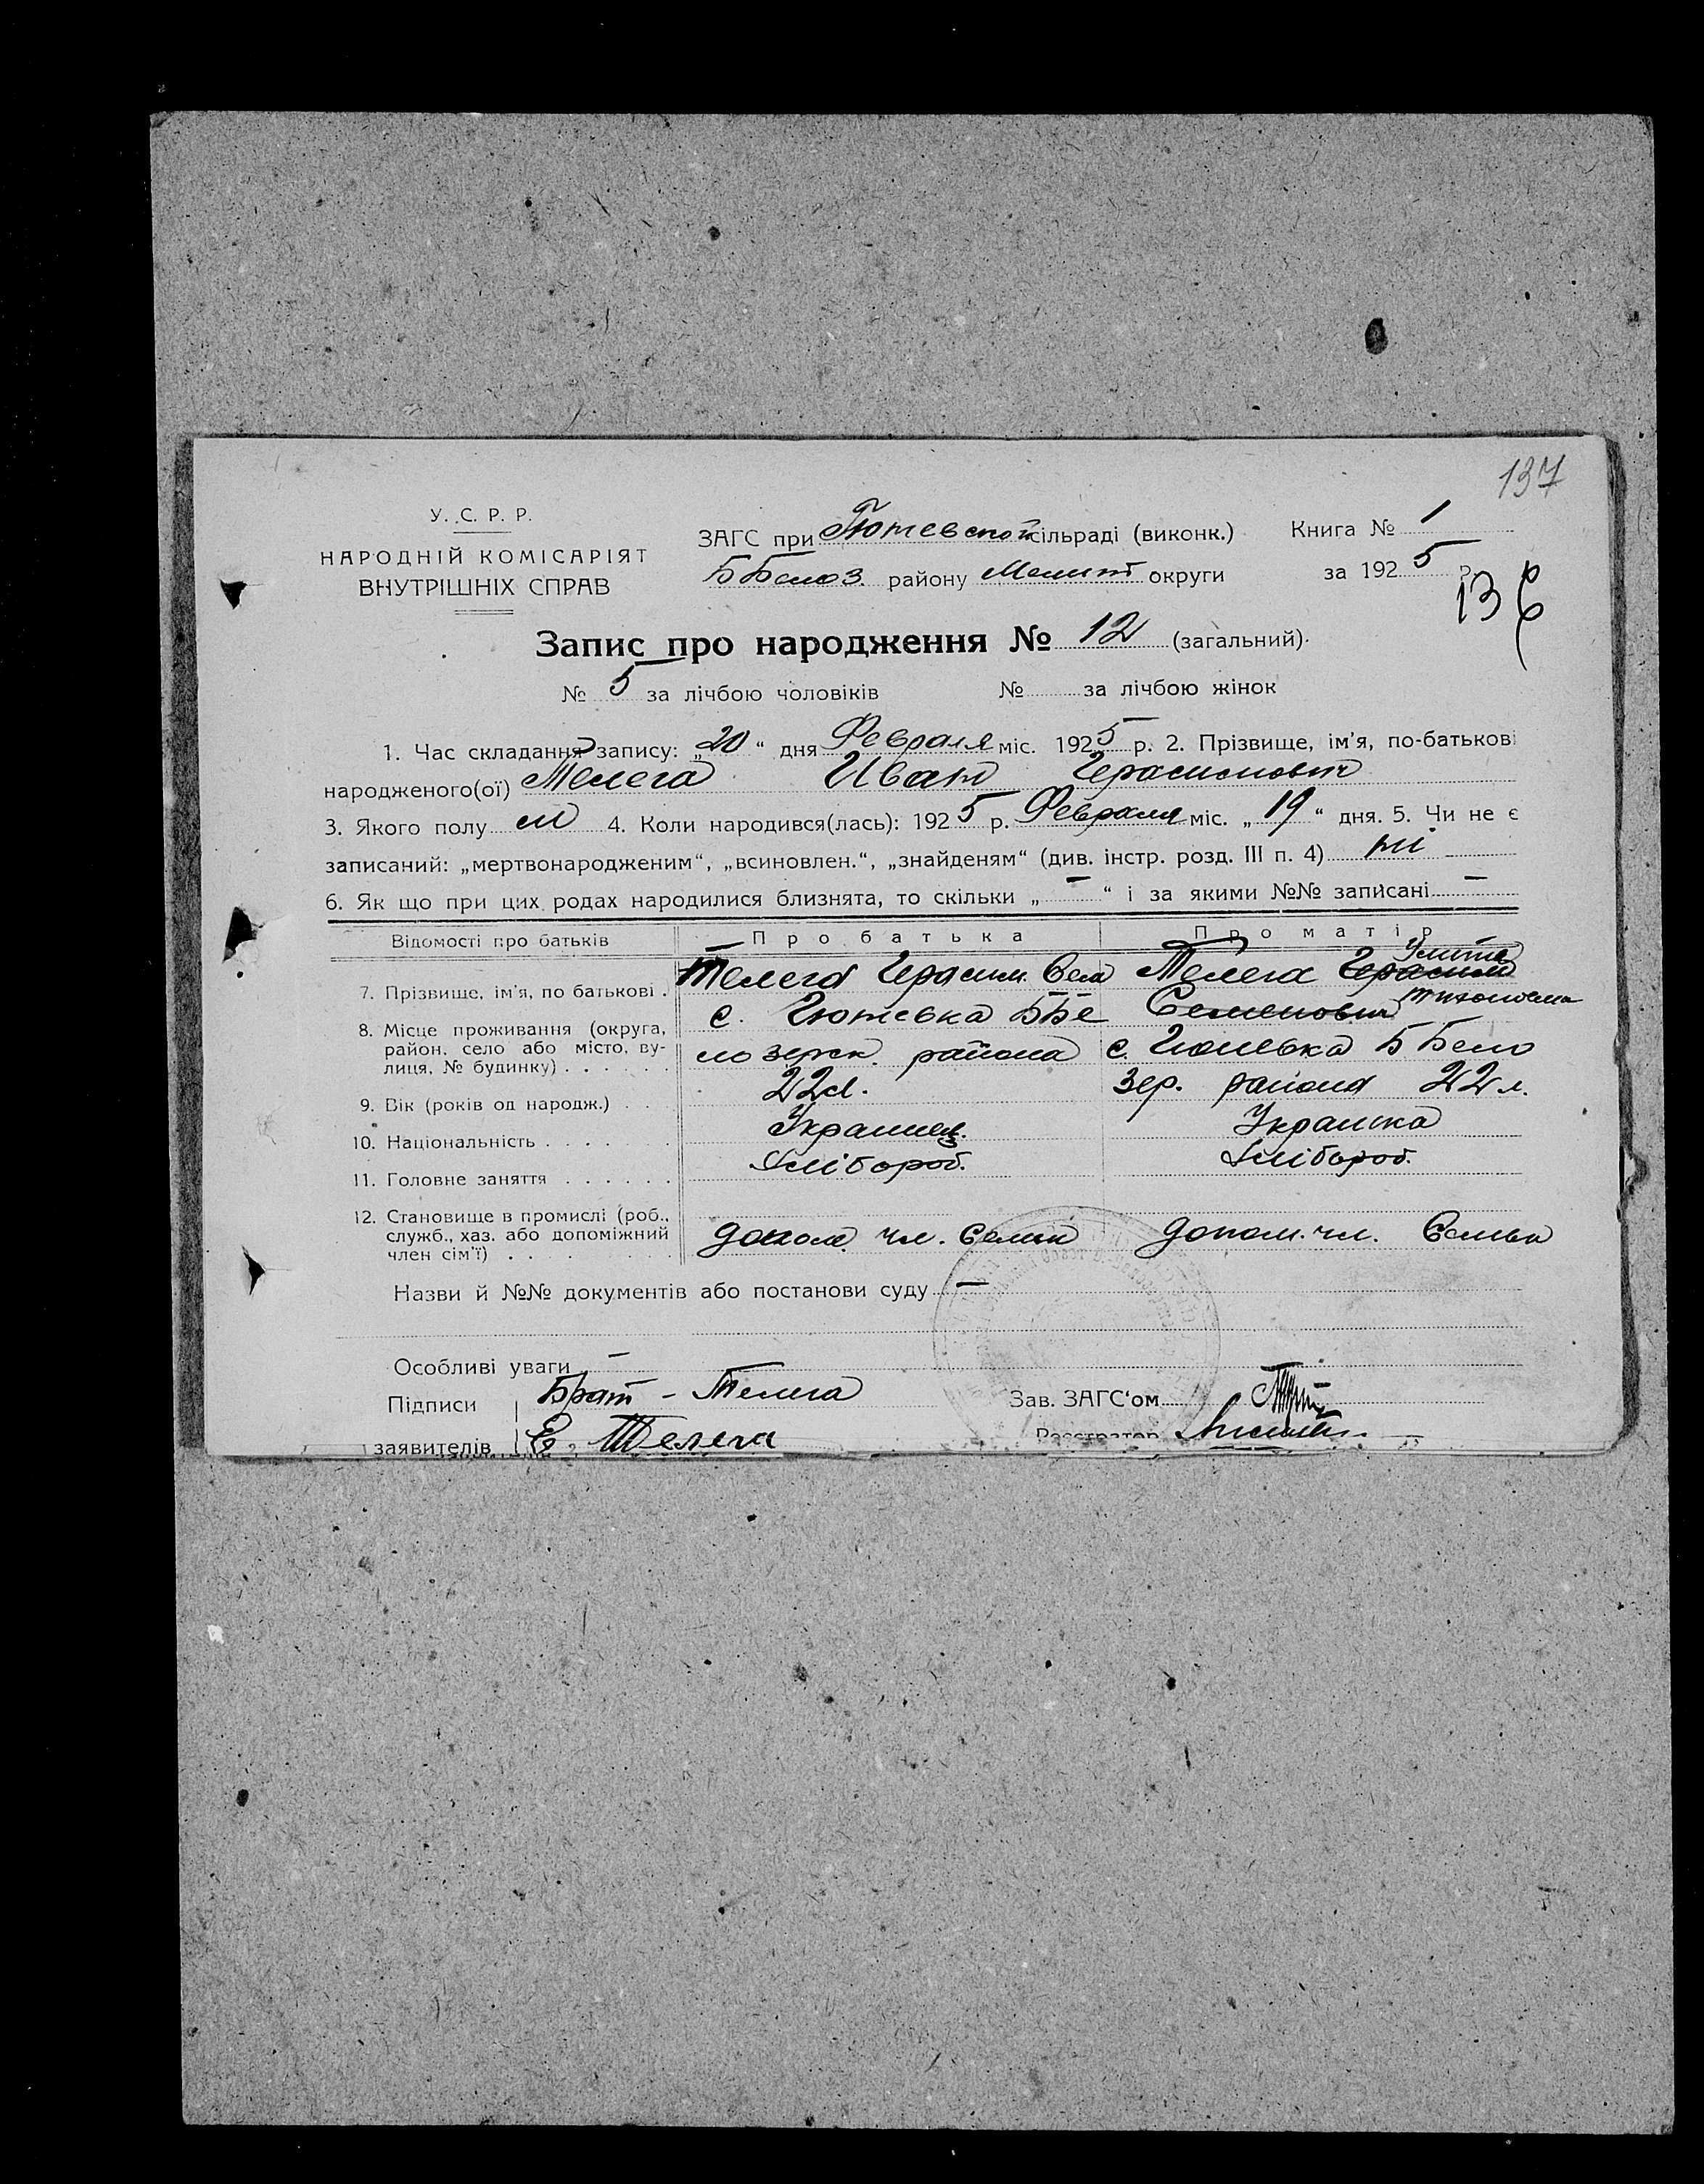 137
У. С. Р. Р.
НАРОДНІЙ КОМІСАРІЯТ
ВНУТРІШНІХ СПРАВ
ЗАГС при Гютевской сільраді (виконк.) Книга № 1
ББелоз. району Мелит округи за 1925 р.
136
Запис про народження № 12 (загальний).
№ 5 за лічбою чоловіків № за лічбою жінок
1. Час складання запису: „20“ дня Февраля міс. 1925 р. 2. Прізвище, ім'я, по-батькові
народженого(ої) Телега Иван Герасимович
3. Якого полу м 4. Коли народився(лась): 1925 р. Февраля міс. „19“ дня. 5. Чи не є
записаний: „мертвонародженим“, „всиновлен.“, „знайденям“ (див. інстр. розд. III п. 4) ні
6. Як що при цих родах народилися близнята, то скільки „—“ і за якими №№ записані —
Відомості про батьків Про батька Про матір
7. Прізвище, ім'я, по батькові . Телега Герасим Сем Телега Герасим Улита
Семенович Тихоновна
8. Місце проживання (округа, с. Гютевка ББе
район, село або місто, ву- лозерск района с. Гютевка ББело
лиця, № будинку) . . . . . .
9. Вік (років од народж.) . . 22л. зер. района 22л.
10. Національність . . . . Украинец. Украинка
11. Головне заняття . . . . . . Хлібороб. Хлібороб.
12. Становище в промислі (роб.,
служб., хаз. або допоміжний допом. чл. Семьи допом. чл. Семьи
член сім'ї) . . .
Назви й №№ документів або постанови суду —
Особливі уваги —
Підписи Брат - Телега Зав. ЗАГС'ом
заявителів Е. Телега Реєстратор